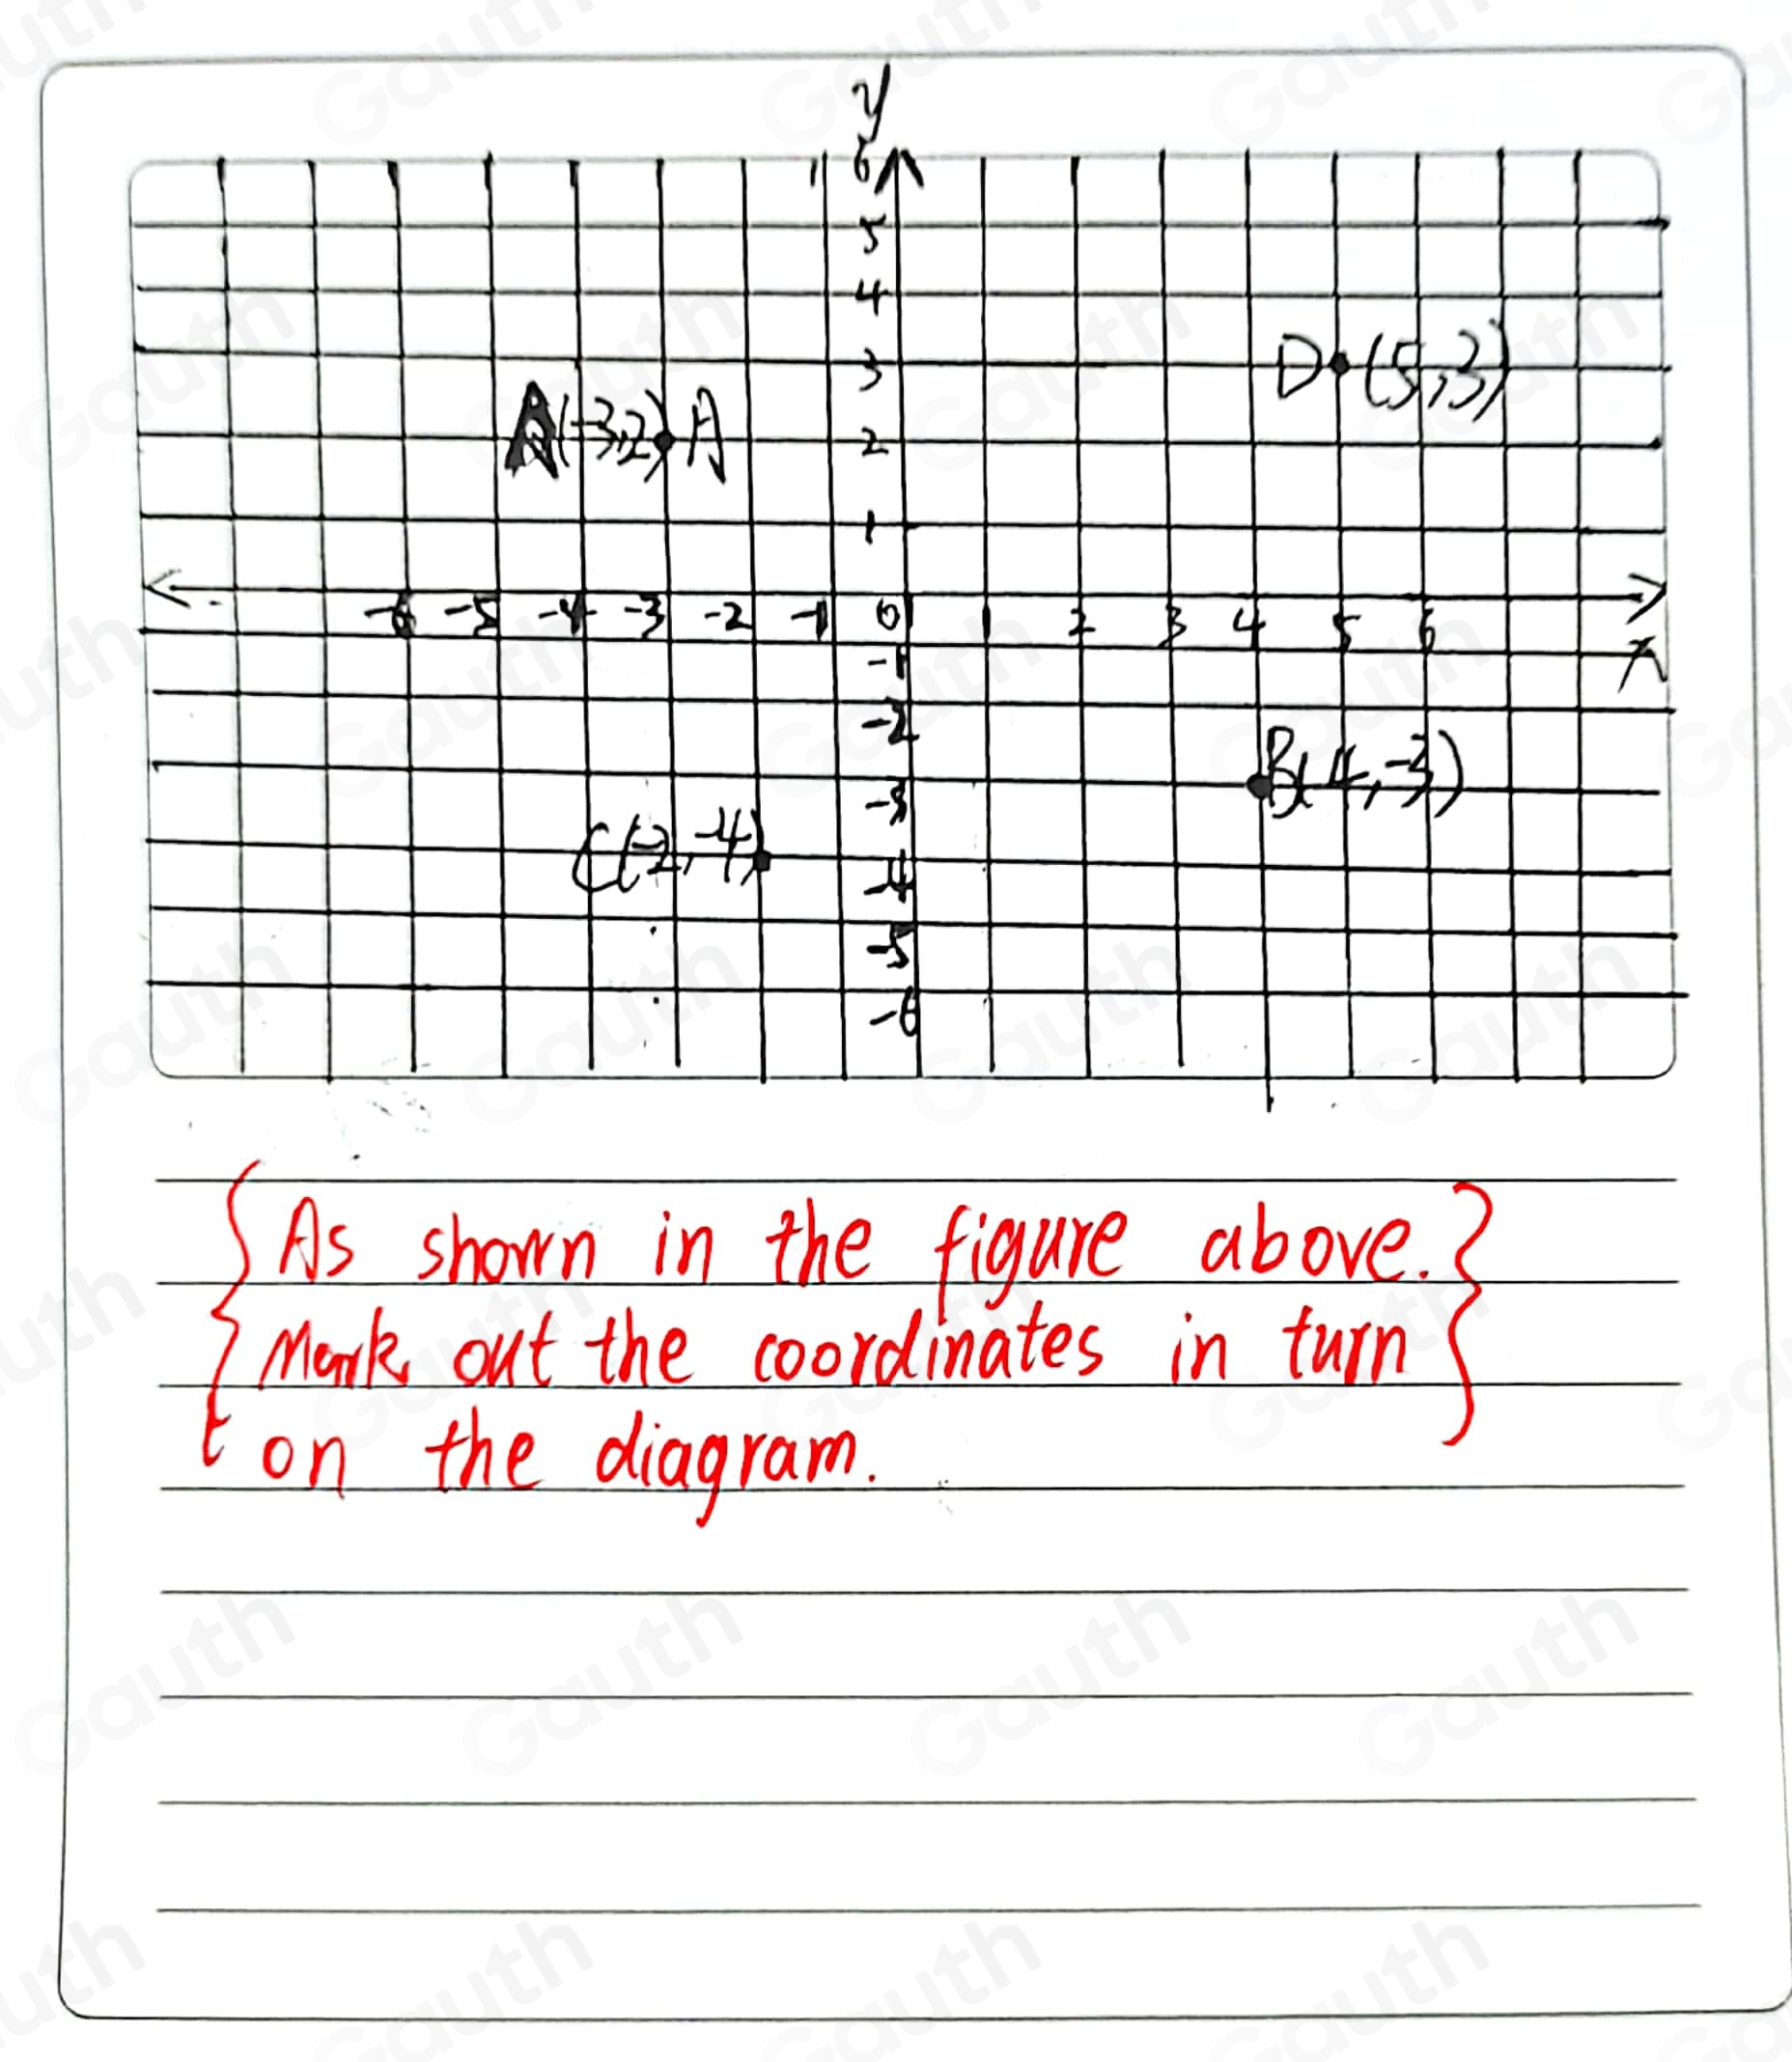 y
6
5
4
3
D (5,3)
A(-3,2) A
2
1
-6 -5 -4 -3 -2 -1 0 1 2 3 4 5 6
x
-1
-2
B(4,-3)
-3
C(-2,-4)
-4
-5
-6
{As shown in the figure above.}
Mark out the coordinates in turn
on the diagram.
Gauth